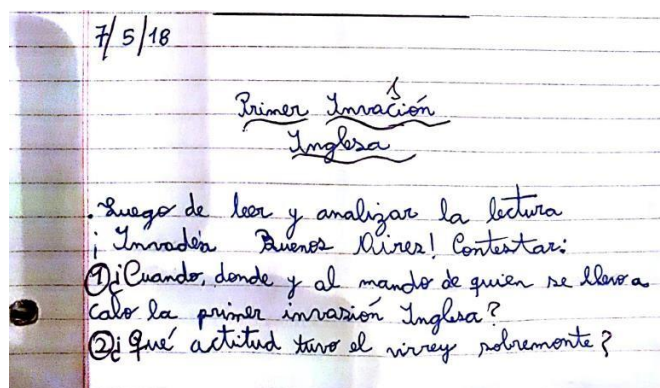 7/5/18
Primer Invación
s
Inglesa
. Luego de leer y analizar la lectura
¡Invadén Buenos Aires! Contestar:
①¿Cuando, donde y al mando de quien se llevo a
calo la primer invasión Inglesa?
②¿Qué actitud tuvo el virrey sobremonte?